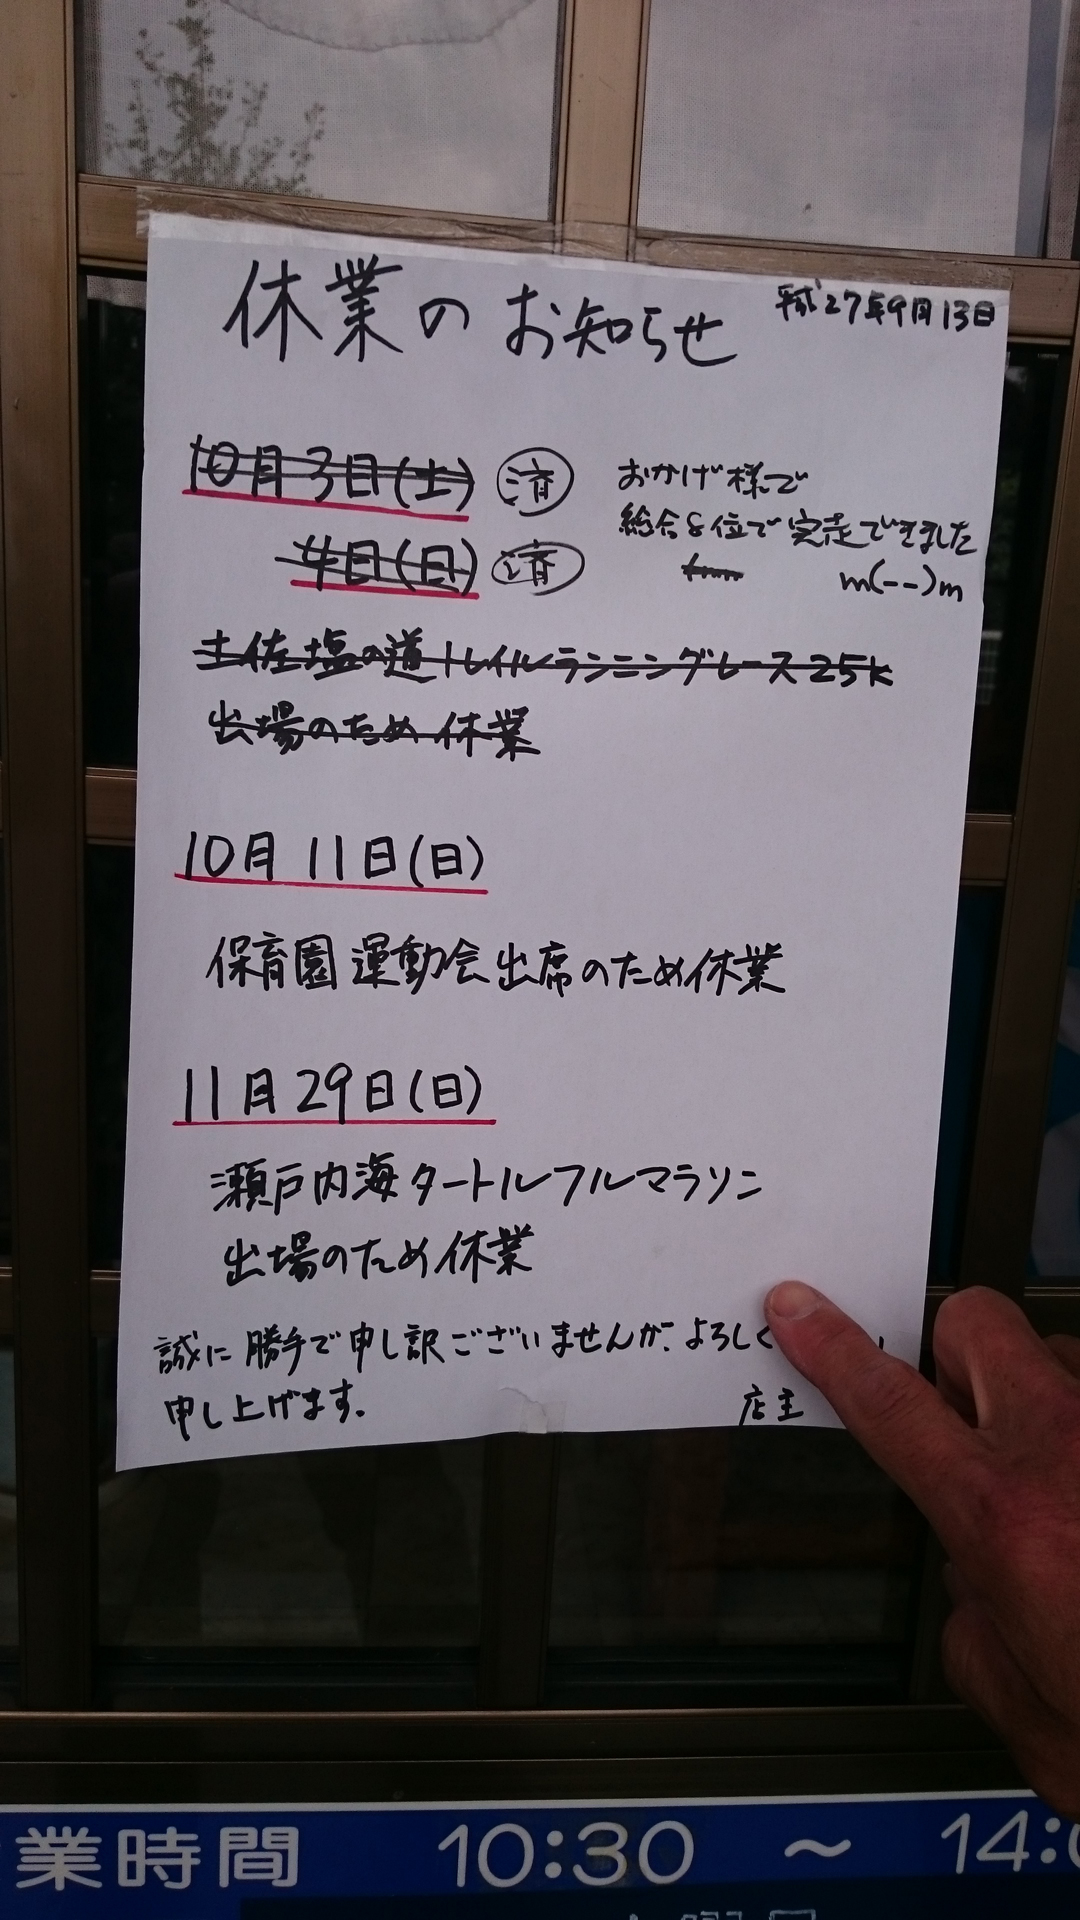 休業のお知らせ
平成27年9月13日
10月3日(土) 済
4日(日) 済
おかげ様で
総合8位で完走できました
m(--)m
土佐塩の道トレイルランニングレース25k
出場のため休業
10月11日(日)
保育園運動会出席のため休業
11月29日(日)
瀬戸内海タートルフルマラソン
出場のため休業
誠に勝手で申し訳ございませんが、よろしく
申し上げます。
店主
業時間 10:30 ～ 14:0